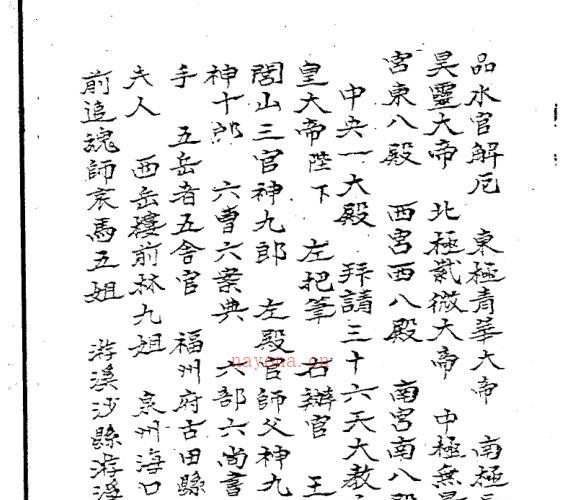 品水官解厄 東極青華大帝 南極
昊靈大帝 北極紫微大帝 中極無
宮東八殿 西宮西八殿 南宮南八殿
中央一大殿 拜請三十六天大教
皇大帝陛下 左把筆 右辦官 王
閭山三官神九郎 左殿官師父神九
神十郎 六曹六案典 六部六尚書
手 五岳者五舍官 福州府古田縣
夫人 西岳樓前林九姐 泉州海口
前追魂師哀馬五姐 游溪沙縣游溪
nayona.cn